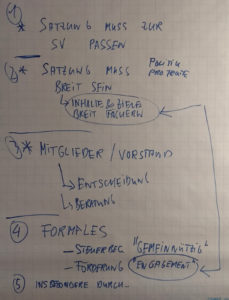 ① * SATZUNG MUSS ZUR
SV PASSEN
② * SATZUNG MUSS
BREIT SEIN
↳ INHALTE & ZIELE
BREIT FÄCHERN
③ * MITGLIEDER / VORSTAND
↳ ENTSCHEIDUNG
↳ BERATUNG
④ FORMALES
– STEUERBEG. "GEMEINNÜTZIG"
– FÖRDERUNG "ENGAGEMENT"
⑤ INSBESONDERE DURCH...